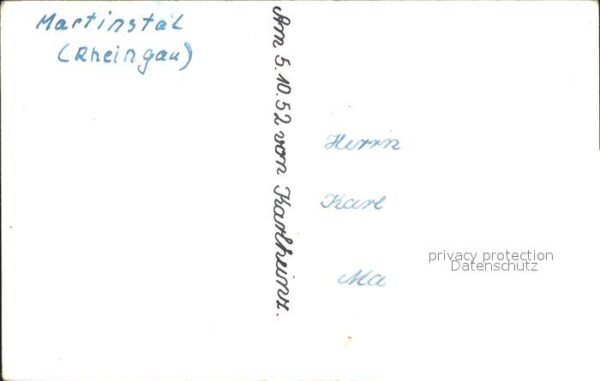 Martinstal
(Rheingau)
Am 5.10.52 vom Karlheinz.
Herrn
Karl
Ma
privacy protection
Datenschutz